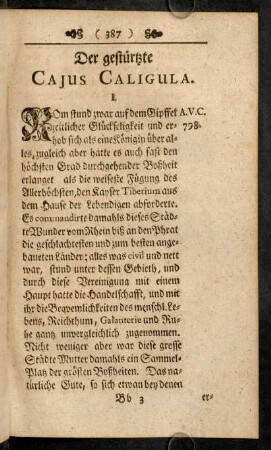 ( 387 )
Der gestürtzte
CAJUS CALIGULA.
I.
ROm stund zwar auf dem Gipffel A.V.C.
zeitlicher Glückseligkeit und er- 798.
hob sich als eine Königin über al-
les, zugleich aber hatte es auch fast den
höchsten Grad durchgehender Boßheit
erlanget als die weiseste Fügung des
Allerhöchsten, den Kayser Tiberium aus
dem Hause der Lebendigen abforderte.
Es commandirte damahls dieses Städ-
te Wunder vom Rhein biß an den Phrat
die geschlachtesten und zum besten ange-
baueten Länder; alles was civil und nett
war, stund unter dessen Gebieth, und
durch diese Vereinigung mit einem
Haupt hatte die Handelschafft, und mit
ihr die Beqvemlichkeiten des menschl. Le-
bens, Reichthum, Galanterie und Ru-
he gantz unvergleichlich zugenommen.
Nicht weniger aber war diese grosse
Städte Mutter damahls ein Sammel-
Platz der grösten Boßheiten. Das na-
türliche Gute, so sich etwan bey denen
Bb 3 er-